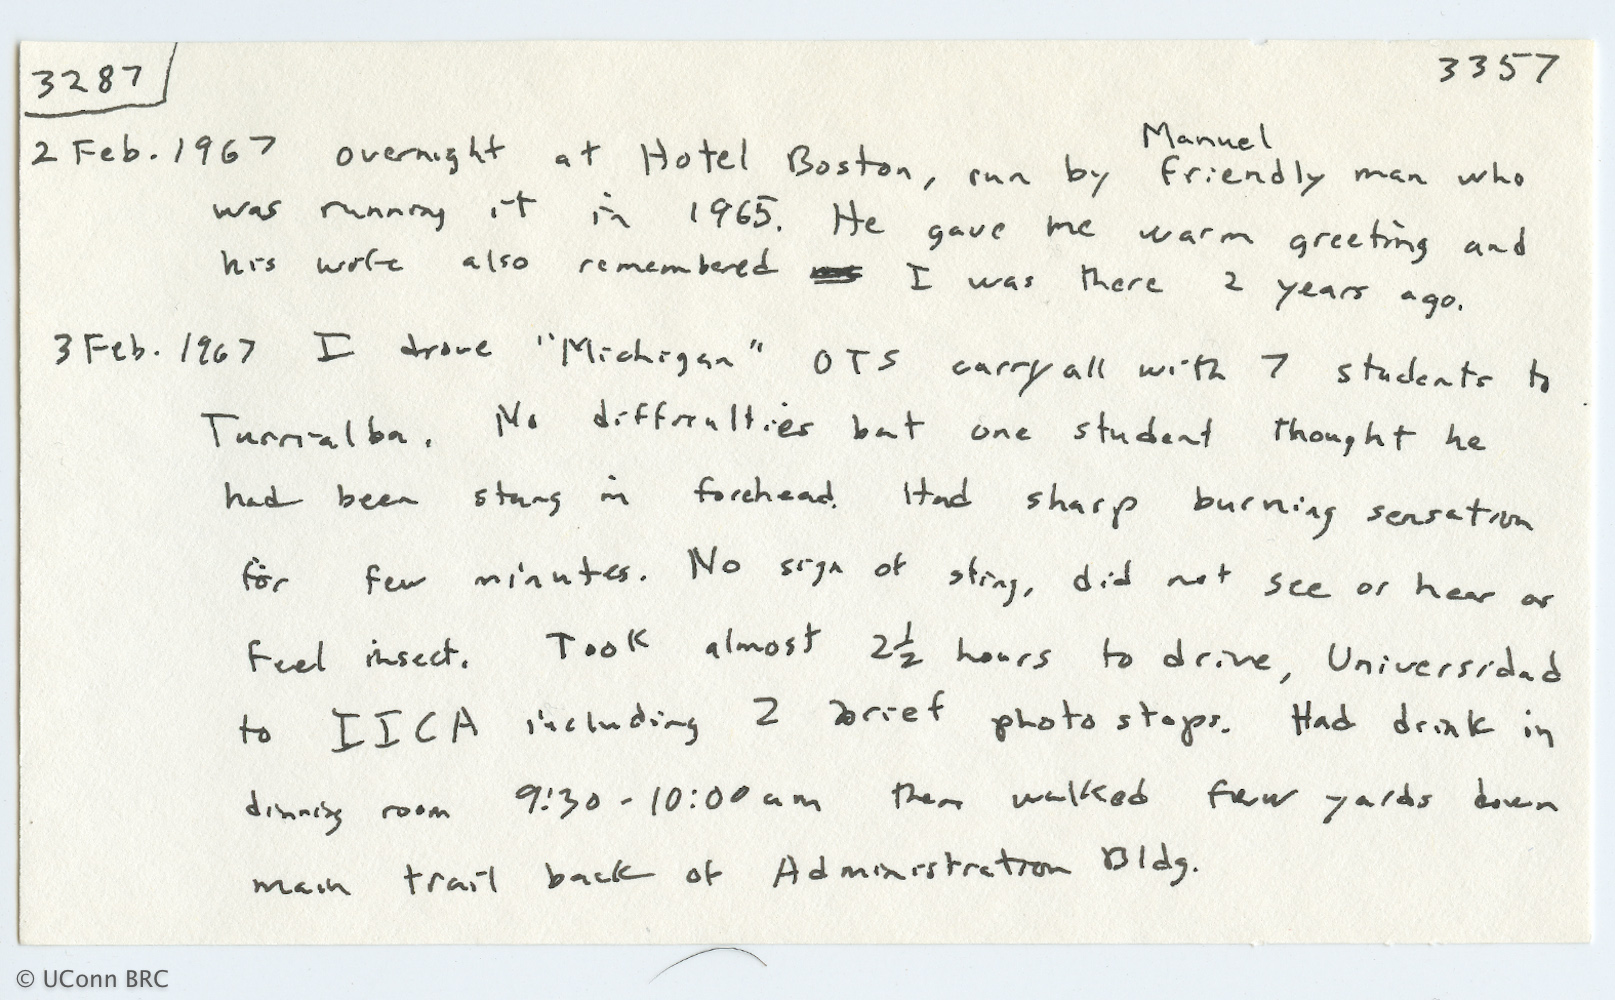 3287 3357
Manuel
2 Feb. 1967 overnight at Hotel Boston, run by friendly man who
was running it in 1965. He gave me warm greeting and
his wife also remembered I was there 2 years ago.
3 Feb. 1967 I drove "Michigan" OTS carryall with 7 students to
Turrialba. No difficulties but one student thought he
had been stung in forehead. Had sharp burning sensation
for few minutes. No sign of sting, did not see or hear or
feel insect. Took almost 2½ hours to drive, Universidad
to IICA including 2 brief photo stops. Had drink in
dinning room 9:30 - 10:00 am then walked few yards down
main trail back of Administration Bldg.
© UConn BRC